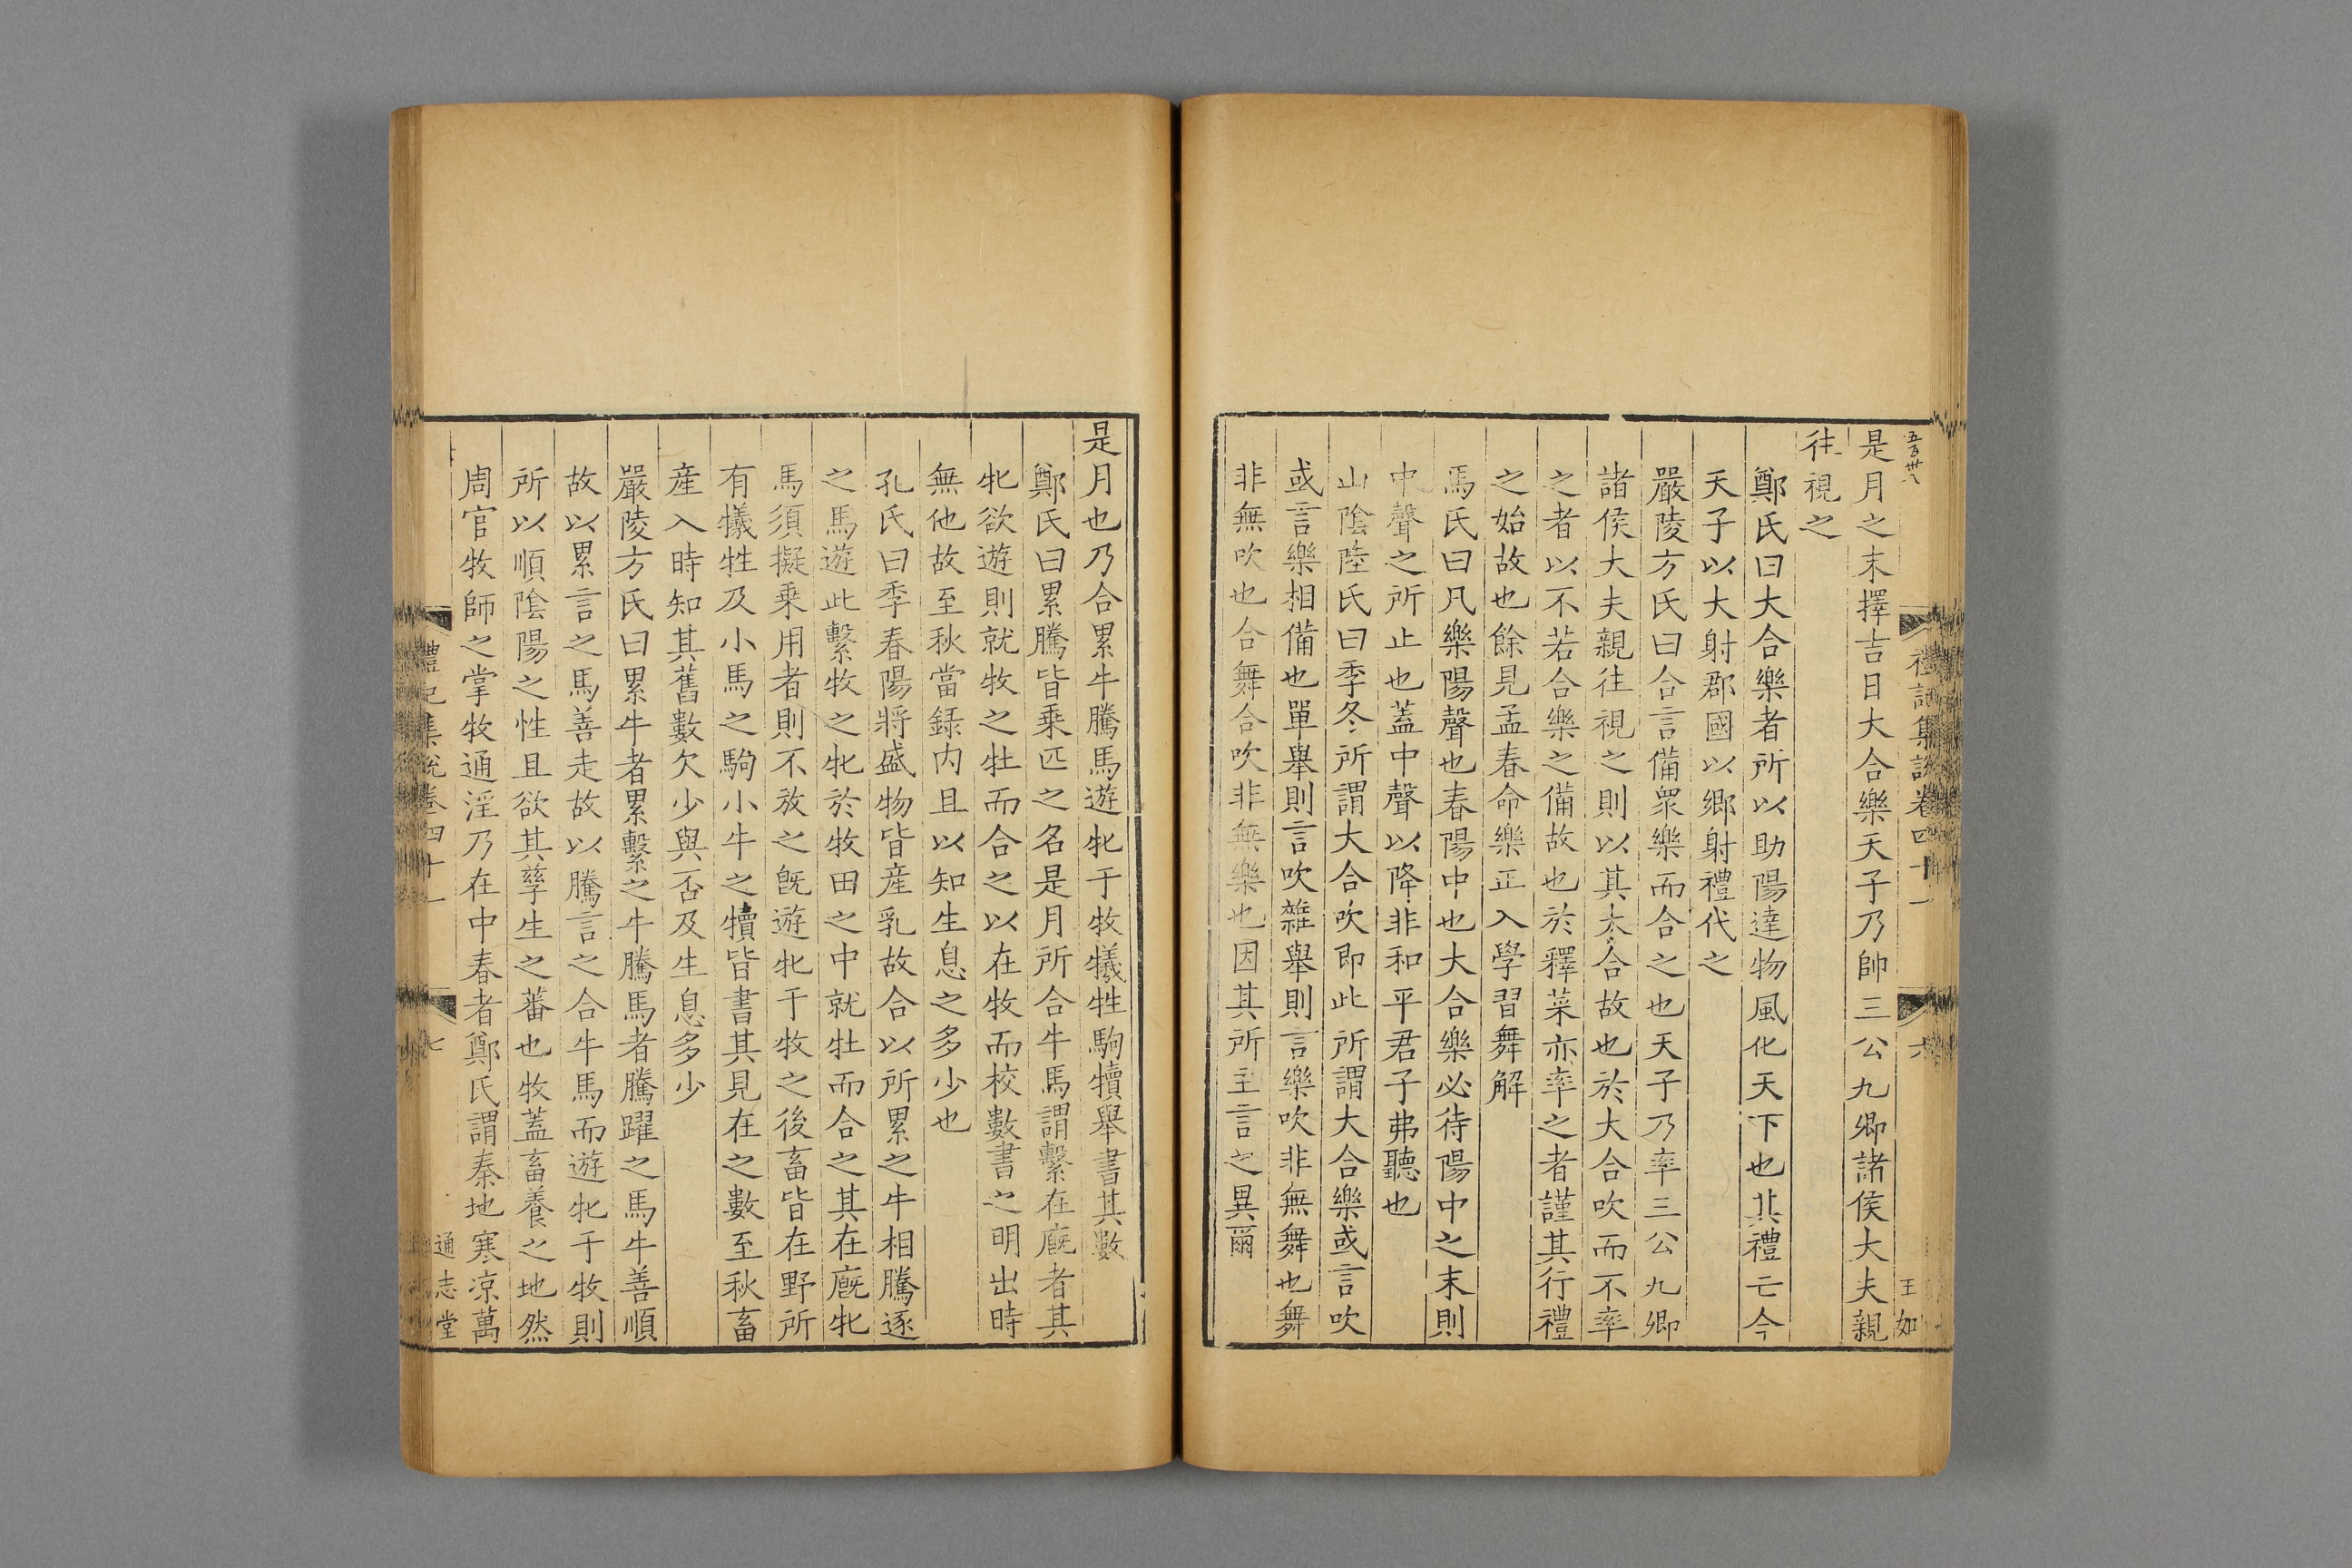 五百卅八
禮記集說卷四十一
六
王如
是月之末擇吉日大合樂天子乃帥三公九卿諸侯大夫親
往視之
鄭氏曰大合樂者所以助陽達物風化天下也其禮亡今
天子以大射郡國以鄉射禮代之
嚴陵方氏曰合言備衆樂而合之也天子乃率三公九卿
諸侯大夫親往視之則以其大合故也於大合吹而不率
之者以不若合樂之備故也於釋菜亦率之者謹其行禮
之始故也餘見孟春命樂正入學習舞解
馬氏曰凡樂陽聲也春陽中也大合樂必待陽中之末則
中聲之所止也蓋中聲以降非和平君子弗聽也
山陰陸氏曰季冬所謂大合吹即此所謂大合樂或言吹
或言樂相備也單舉則言吹雜舉則言樂吹非無舞也舞
非無吹也合舞合吹非無樂也因其所主言之異爾
是月也乃合累牛騰馬遊牝于牧犧牲駒犢舉書其數
鄭氏曰累騰皆乗匹之名是月所合牛馬謂繫在廐者其
牝欲遊則就牧之牡而合之以在牧而校數書之明出時
無他故至秋當録内且以知生息之多少也
孔氏曰季春陽將盛物皆産乳故合以所累之牛相騰逐
之馬遊此繫牧之牝於牧田之中就牡而合之其在廐牝
馬須擬乗用者則不放之旣遊牝于牧之後畜皆在野所
有犧牲及小馬之駒小牛之犢皆書其見在之數至秋畜
産入時知其舊數欠少與否及生息多少
嚴陵方氏曰累牛者累繫之牛騰馬者騰躍之馬牛善順
故以累言之馬善走故以騰言之合牛馬而遊牝于牧則
所以順陰陽之性且欲其孳生之蕃也牧蓋畜養之地然
周官牧師之掌牧通淫乃在中春者鄭氏謂秦地寒涼萬
禮記集說卷四十一
七
通志堂